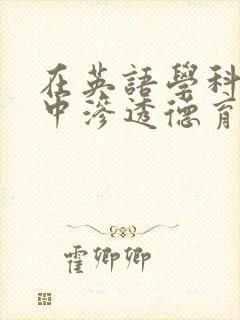 在英語學科
中滲透德育
霍卿卿